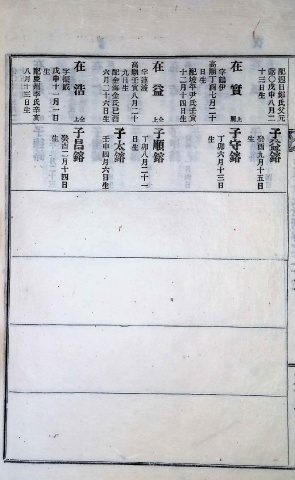 配迎日鄭氏父元
戊申八月二
十三日生
子益鎔
癸酉九月十五
日生
在實
字
高宗丁酉七月二十
日生
配坡平尹氏壬寅
十二月十四日生
子守鎔
丁卯六月十三
日生
在益
高宗壬寅八月二十
九日生
配金海金氏己酉
六月二十六日生
子順鎔
丁卯八月二十一
日生
子太鎔
壬申四月六日生
在浩
戊申十一月一日
生
配慶州李氏辛亥
八月十三日生
子昌鎔
癸酉二月十四日
生